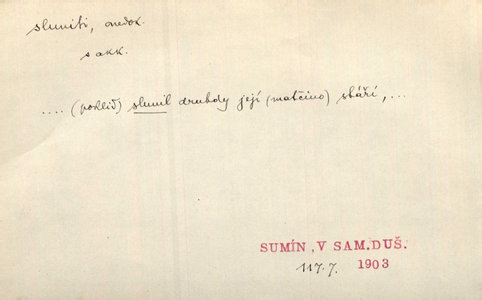 sluniti, nedok.
s akk.
.... (pohled) slunil druhdy její (matčino) stáří, ...
SUMÍN, V SAM. DUŠ.
117.7. 1903